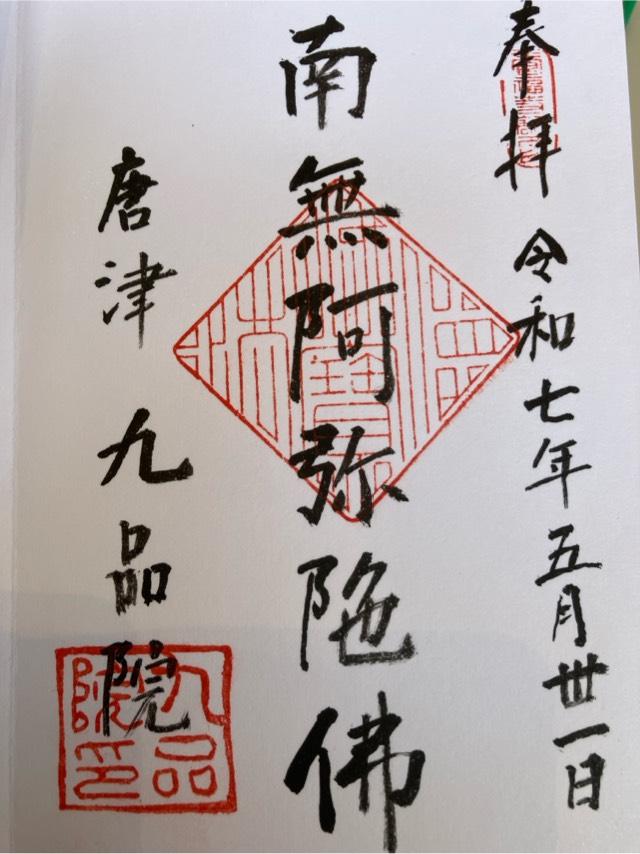 奉拝 令和七年五月丗一日
南無阿弥陀佛
唐津 九品院
九品院印